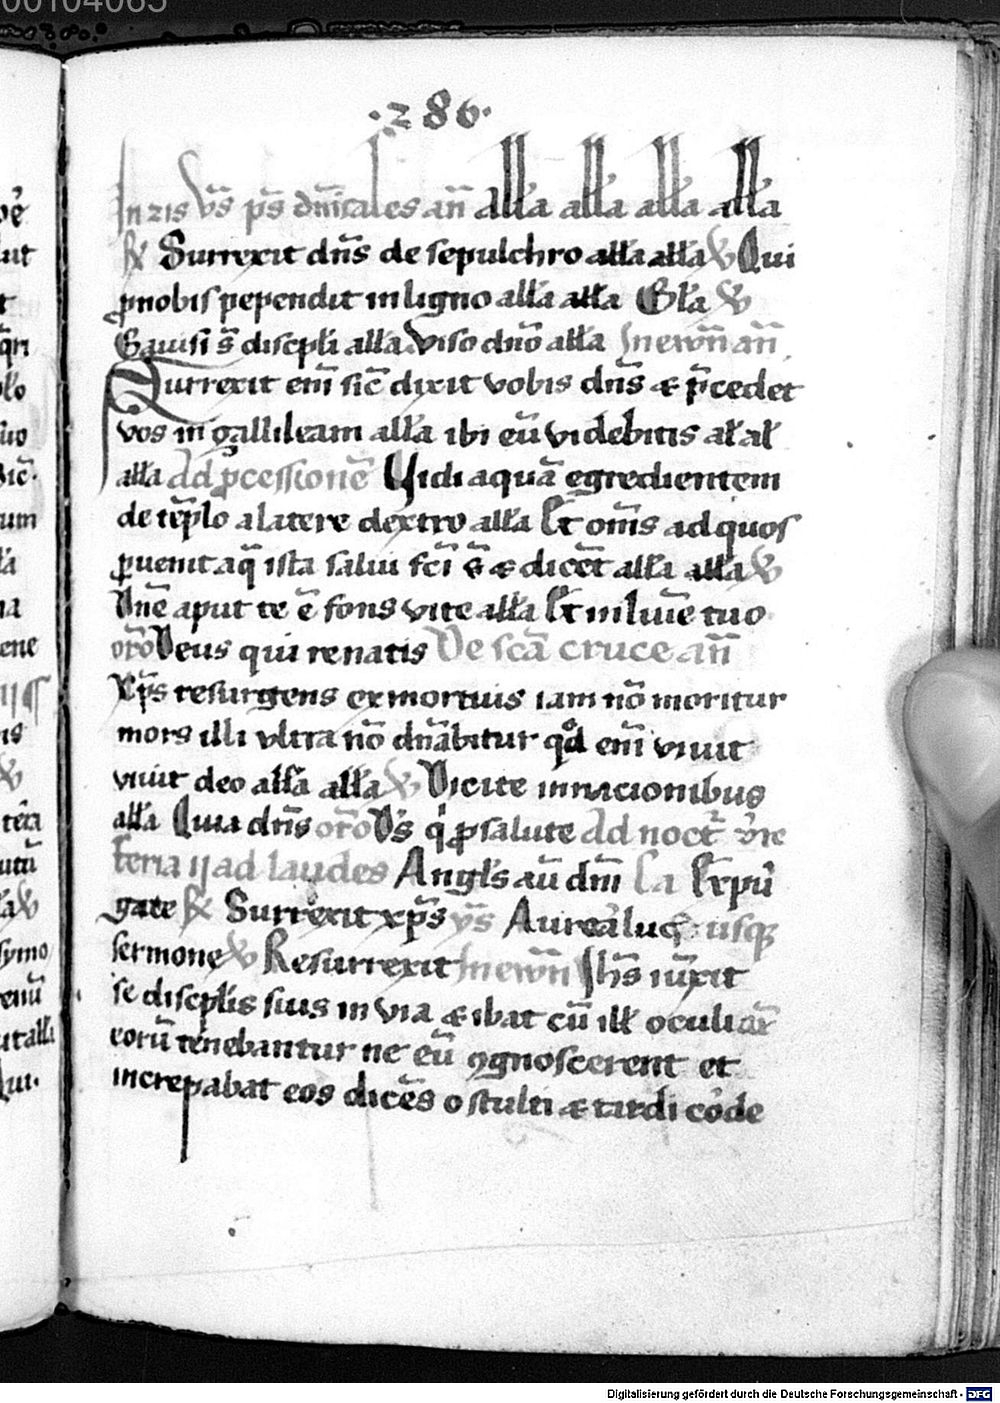 00104065
·286·
In ɪɪis v̄s ps̄ dn̄icales an̄ alła alła alła alła
℟ Surrexit dn̄s de sepulchro alła alła ℣ Qui
ꝓnobis pependit in ligno alła alła Gła ℣
Gauisi s̄ discipli alła Viso dn̄o alła In ewn̄ an̄
Surrexit em̄ sic̄ dixit vobis dn̄s ⁊ p̄cedet
vos in gallileam alła ibi eū videbitis ał ał
alła Ad ꝓcessionē Vidi aquā egredientem
de tēplo a latere dextro alła Et om̄s ad quos
ꝑuenit aq̄ ista salui fc̄i s̄ ⁊ dicēt alła alła ℣
Dn̄e aput te ē fons vite alła Et in luīe tuo
oro Deus qui renatis De scā cruce an̄
Xp̄s resurgens ex mortuis iam nō moritur
mors illi vltra nō dn̄abitur qd em̄ viuit
viuit deo alła alła ℣ Dicite in nacionibus
alła Quia dn̄s oro Ds̄ q ꝓ salute Ad noct
feria ij ad laudes Angłs aū dn̄i Ca Expū
gate ℟ Surrexit xp̄s ys̄ Aurea luce usqꝫ
sermone ℣ Resurrexit In ewn̄ Ihs̄ iūxit
se discplis suis in via ⁊ ibat cū ill oculi ar̄
eorū tenebantur ne eū ꝯgnoscerent et
increpabat eos dicēs o stulti ⁊ tardi corde
Digitalisierung gefördert durch die Deutsche Forschungsgemeinschaft - DFG